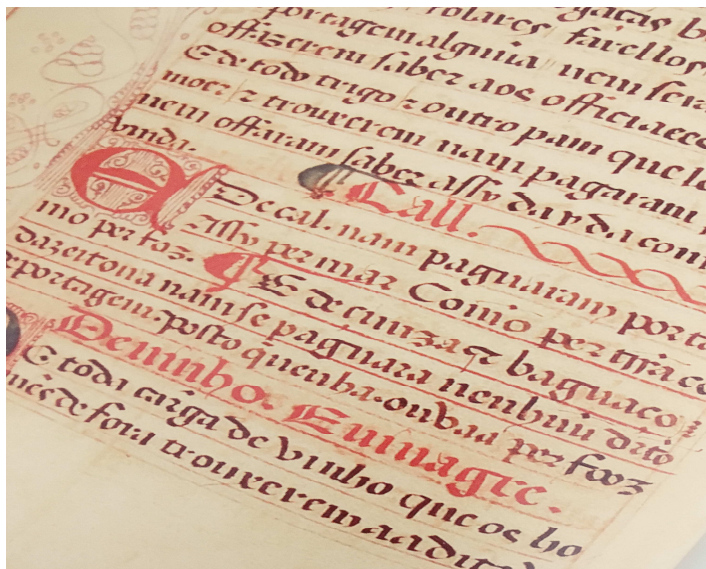 portagem alguũa nem sera
offizerem saber aos officiaaes
E de todo trigo z outro pam que
moer z trouxerem nam pagaram
nem ossaram saber assy da vinda come
vinda.
Call.
De cal. nam paguaram porta
Assy per mar Como per terra co
mo per foz. E de cimza z baguaço z
dazeitona nam se paguara nenhuũ dito
portagem. posto q̃ venha. ou vaa per fooz
De vinho. E vinagre.
E toda carga de vinho que os ho
mẽs de fora trouxerem aa dita